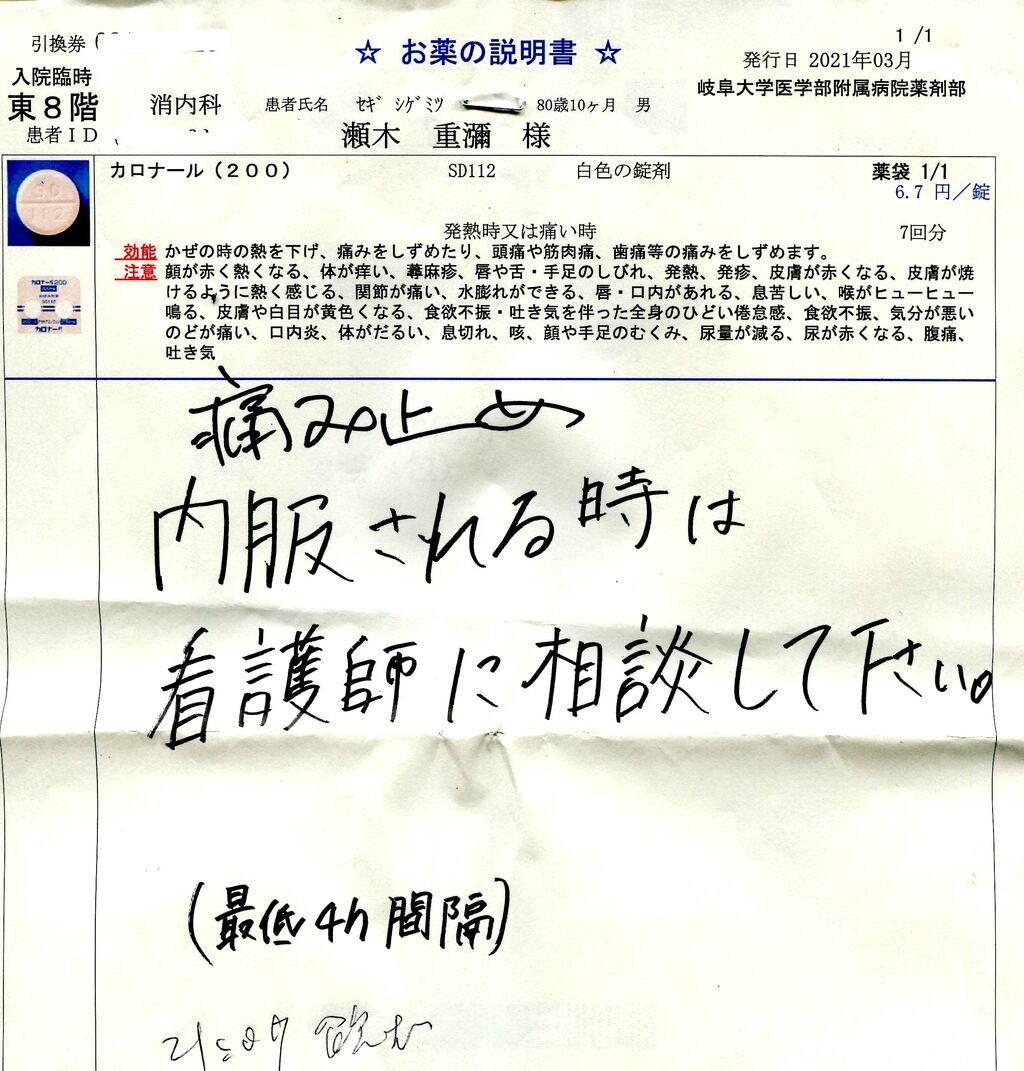 1/1
引換券
☆ お薬の説明書 ☆
発行日 2021年03月
入院臨時
岐阜大学医学部附属病院薬剤部
東8階 消内科 患者氏名 ｾｷﾞ ｼｹﾞﾐﾂ 80歳10ヶ月 男
患者ID
瀬木 重彌 様
カロナール(200) SD112 白色の錠剤 薬袋 1/1
6.7 円/錠
SD
112
発熱時又は痛い時 7回分
効能 かぜの時の熱を下げ、痛みをしずめたり、頭痛や筋肉痛、歯痛等の痛みをしずめます。
注意 顔が赤く熱くなる、体が痒い、蕁麻疹、唇や舌・手足のしびれ、発熱、発疹、皮膚が赤くなる、皮膚が焼
けるように熱く感じる、関節が痛い、水膨れができる、唇・口内があれる、息苦しい、喉がヒューヒュー
鳴る、皮膚や白目が黄色くなる、食欲不振・吐き気を伴った全身のひどい倦怠感、食欲不振、気分が悪い
のどが痛い、口内炎、体がだるい、息切れ、咳、顔や手足のむくみ、尿量が減る、尿が赤くなる、腹痛、
吐き気
カロナール200
カロナール
痛み止め
内服される時は
看護師に相談して下さい。
(最低4h間隔)
飲む